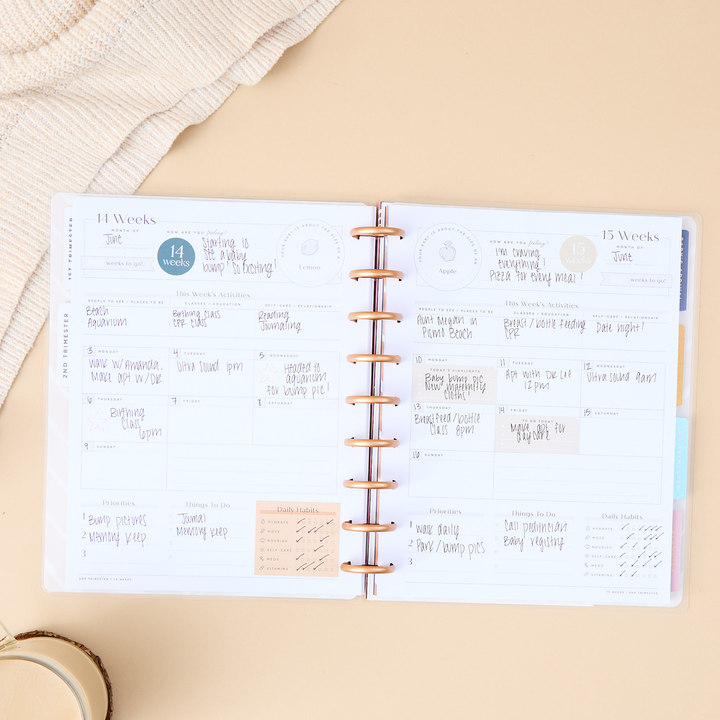 1ST TRIMESTER
2ND TRIMESTER
14 Weeks
MONTH OF
June
weeks to go!
14
weeks
HOW ARE YOU feeling?
Starting to
see a baby
bump! So exciting!
YOUR BABY IS ABOUT THE SIZE OF A
Lemon
This Week's Activities
PEOPLE TO SEE + PLACES TO BE
CLASSES + EDUCATION
SELF-CARE + RELATIONSHIP
Beach
Aquarium
Birthing class
CPR class
Reading
Journaling
3 MONDAY
Walk w/ Amanda.
Make apt w/ DR
4 TUESDAY
Ultra sound 1pm
5 WEDNESDAY
Headed to
aquarium
for bump pic!
6 THURSDAY
Birthing
Class
6pm
7 FRIDAY
8 SATURDAY
9 SUNDAY
Priorities
1 Bump pictures
2 Memory Keep
3
Things To Do
Journal
Memory Keep
Daily Habits
HYDRATE
MOVE
NOURISH
SELF-CARE
MEDS
VITAMINS
2ND TRIMESTER | 14 WEEKS
YOUR BABY IS ABOUT THE SIZE OF A
Apple
HOW ARE YOU feeling?
I'm craving
everything!
Pizza for every meal!
15
weeks
15 Weeks
MONTH OF
June
weeks to go!
This Week's Activities
PEOPLE TO SEE + PLACES TO BE
CLASSES + EDUCATION
SELF-CARE + RELATIONSHIP
Aunt Megan in
Pismo Beach
Breast / bottle feeding
CPR
Date night!
10 MONDAY
TODAY'S HIGHLIGHTS
Baby bump pic
New maternity
cloths!
11 TUESDAY
Apt with DR Lee
12pm
12 WEDNESDAY
Ultra sound 9am
13 THURSDAY
Breastfeed/bottle
Class 8pm
14 FRIDAY
TO DO TODAY
Make apt for
daycare
15 SATURDAY
16 SUNDAY
Priorities
1 Walk daily
2 Park/bump pics
3
Things To Do
Call peditrician
Baby registry
Daily Habits
HYDRATE
MOVE
NOURISH
SELF-CARE
MEDS
VITAMINS
15 WEEKS | 2ND TRIMESTER